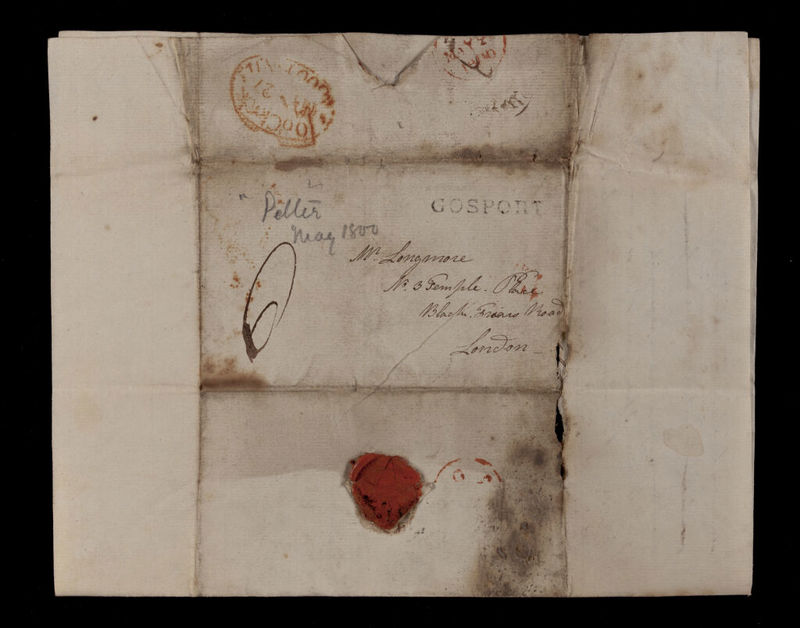 GOSPORT
" Peller
May 1800
6
Mr. Longmore
No. 3 Temple Place
Black Friars Road
London